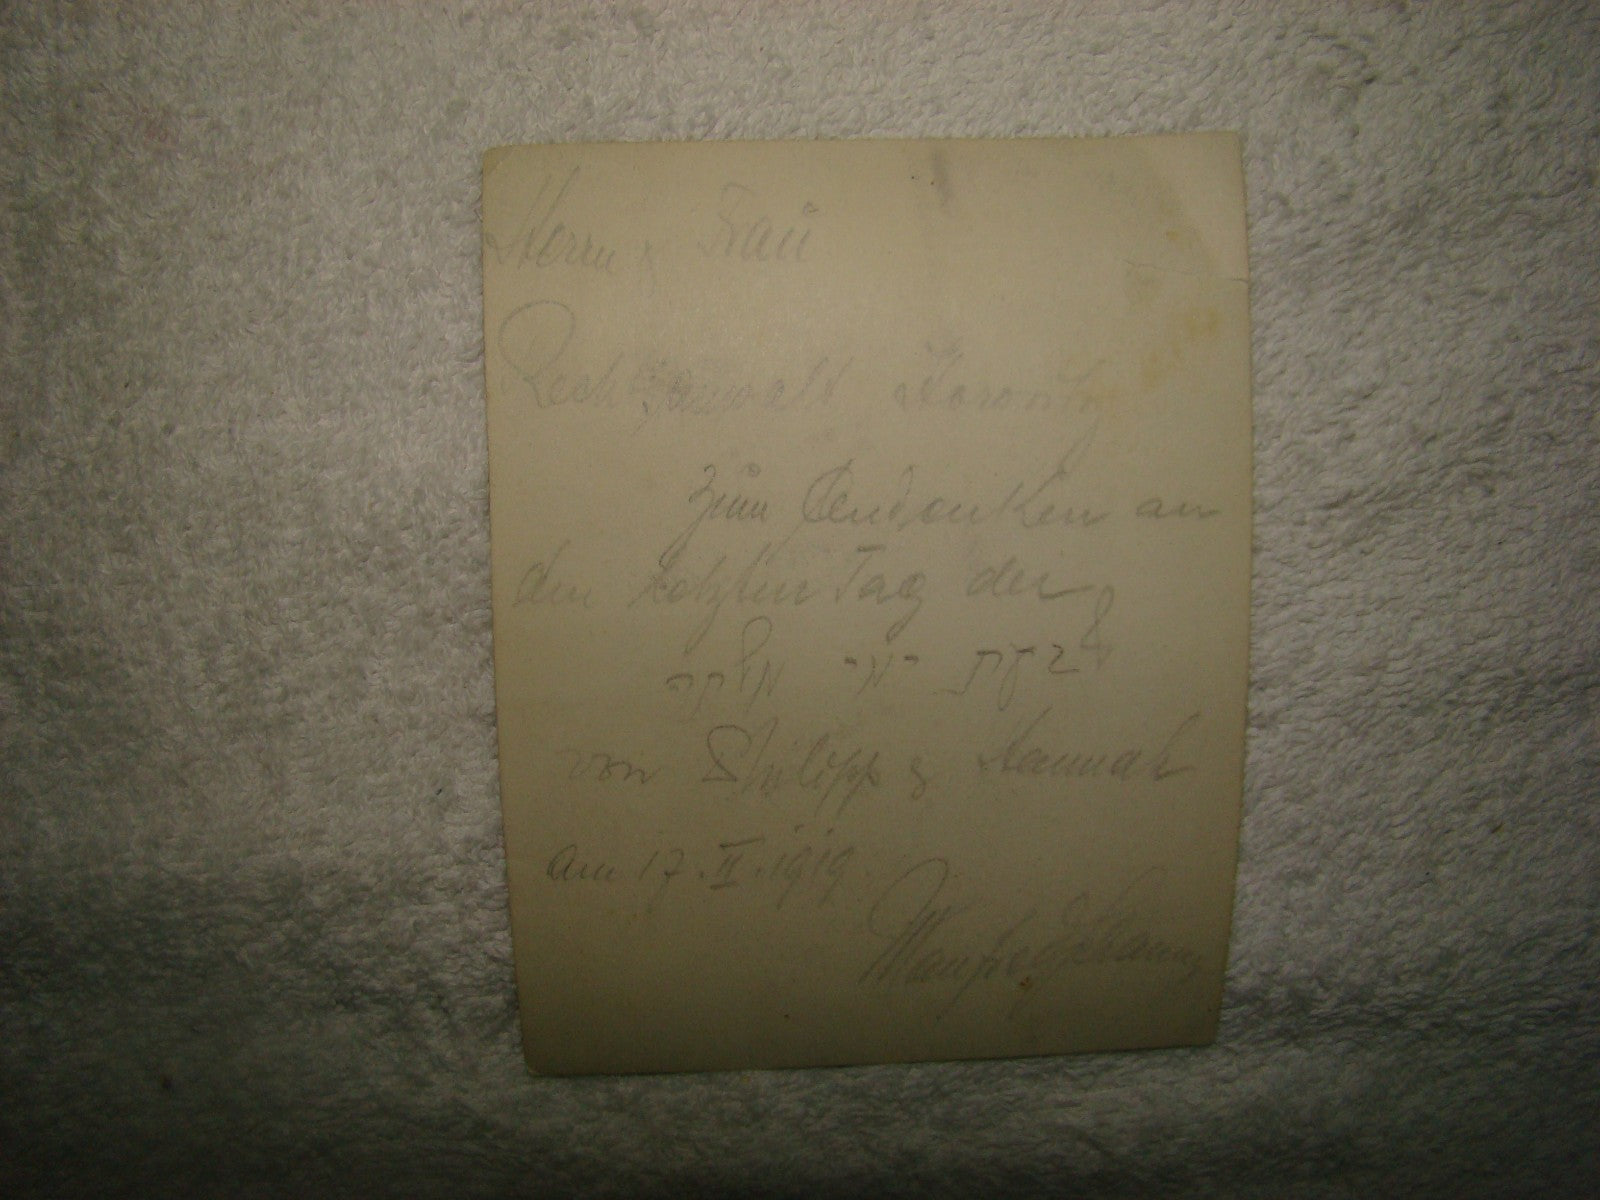 Herrn & Frau
Rechtsanwalt Horovitz
zum Andenken an
den letzten Tag der
שבעת ימי
von Philipp & Hannah
am 17. II. 1919.
Manfred